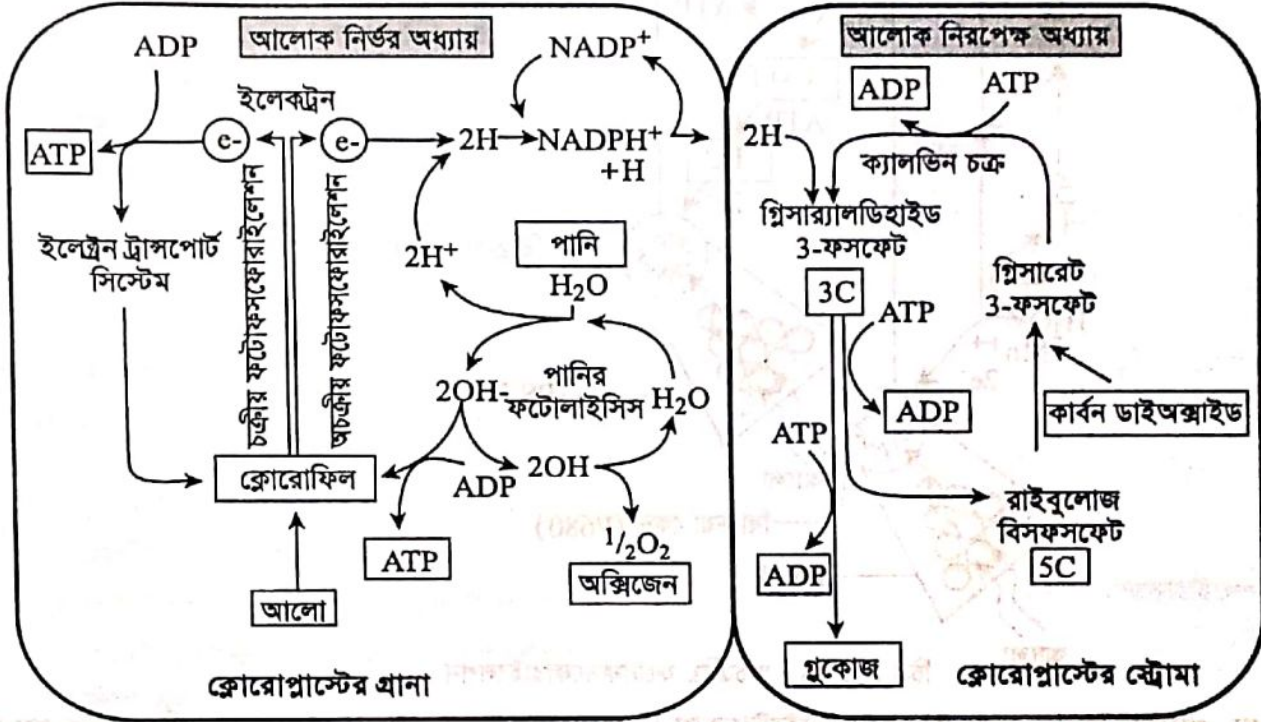 আলোক নির্ভর অধ্যায়
ADP
NADP⁺
ইলেকট্রন
ATP
e-
e-
2H
NADPH⁺
+H
চক্রীয় ফটোফসফোরাইলেশন
অচক্রীয় ফটোফসফোরাইলেশন
ইলেক্ট্রন ট্রান্সপোর্ট
সিস্টেম
2H⁺
পানি
H₂O
2OH-
পানির
ফটোলাইসিস
H₂O
ক্লোরোফিল
ADP
2OH
ATP
1/2O₂
অক্সিজেন
আলো
ক্লোরোপ্লাস্টের গ্রানা
আলোক নিরপেক্ষ অধ্যায়
ADP
ATP
2H
ক্যালভিন চক্র
গ্লিসার‍্যালডিহাইড
3-ফসফেট
3C
গ্লিসারেট
3-ফসফেট
ATP
ADP
কার্বন ডাইঅক্সাইড
ATP
রাইবুলোজ
বিসফসফেট
5C
ADP
গ্লুকোজ
ক্লোরোপ্লাস্টের স্ট্রোমা